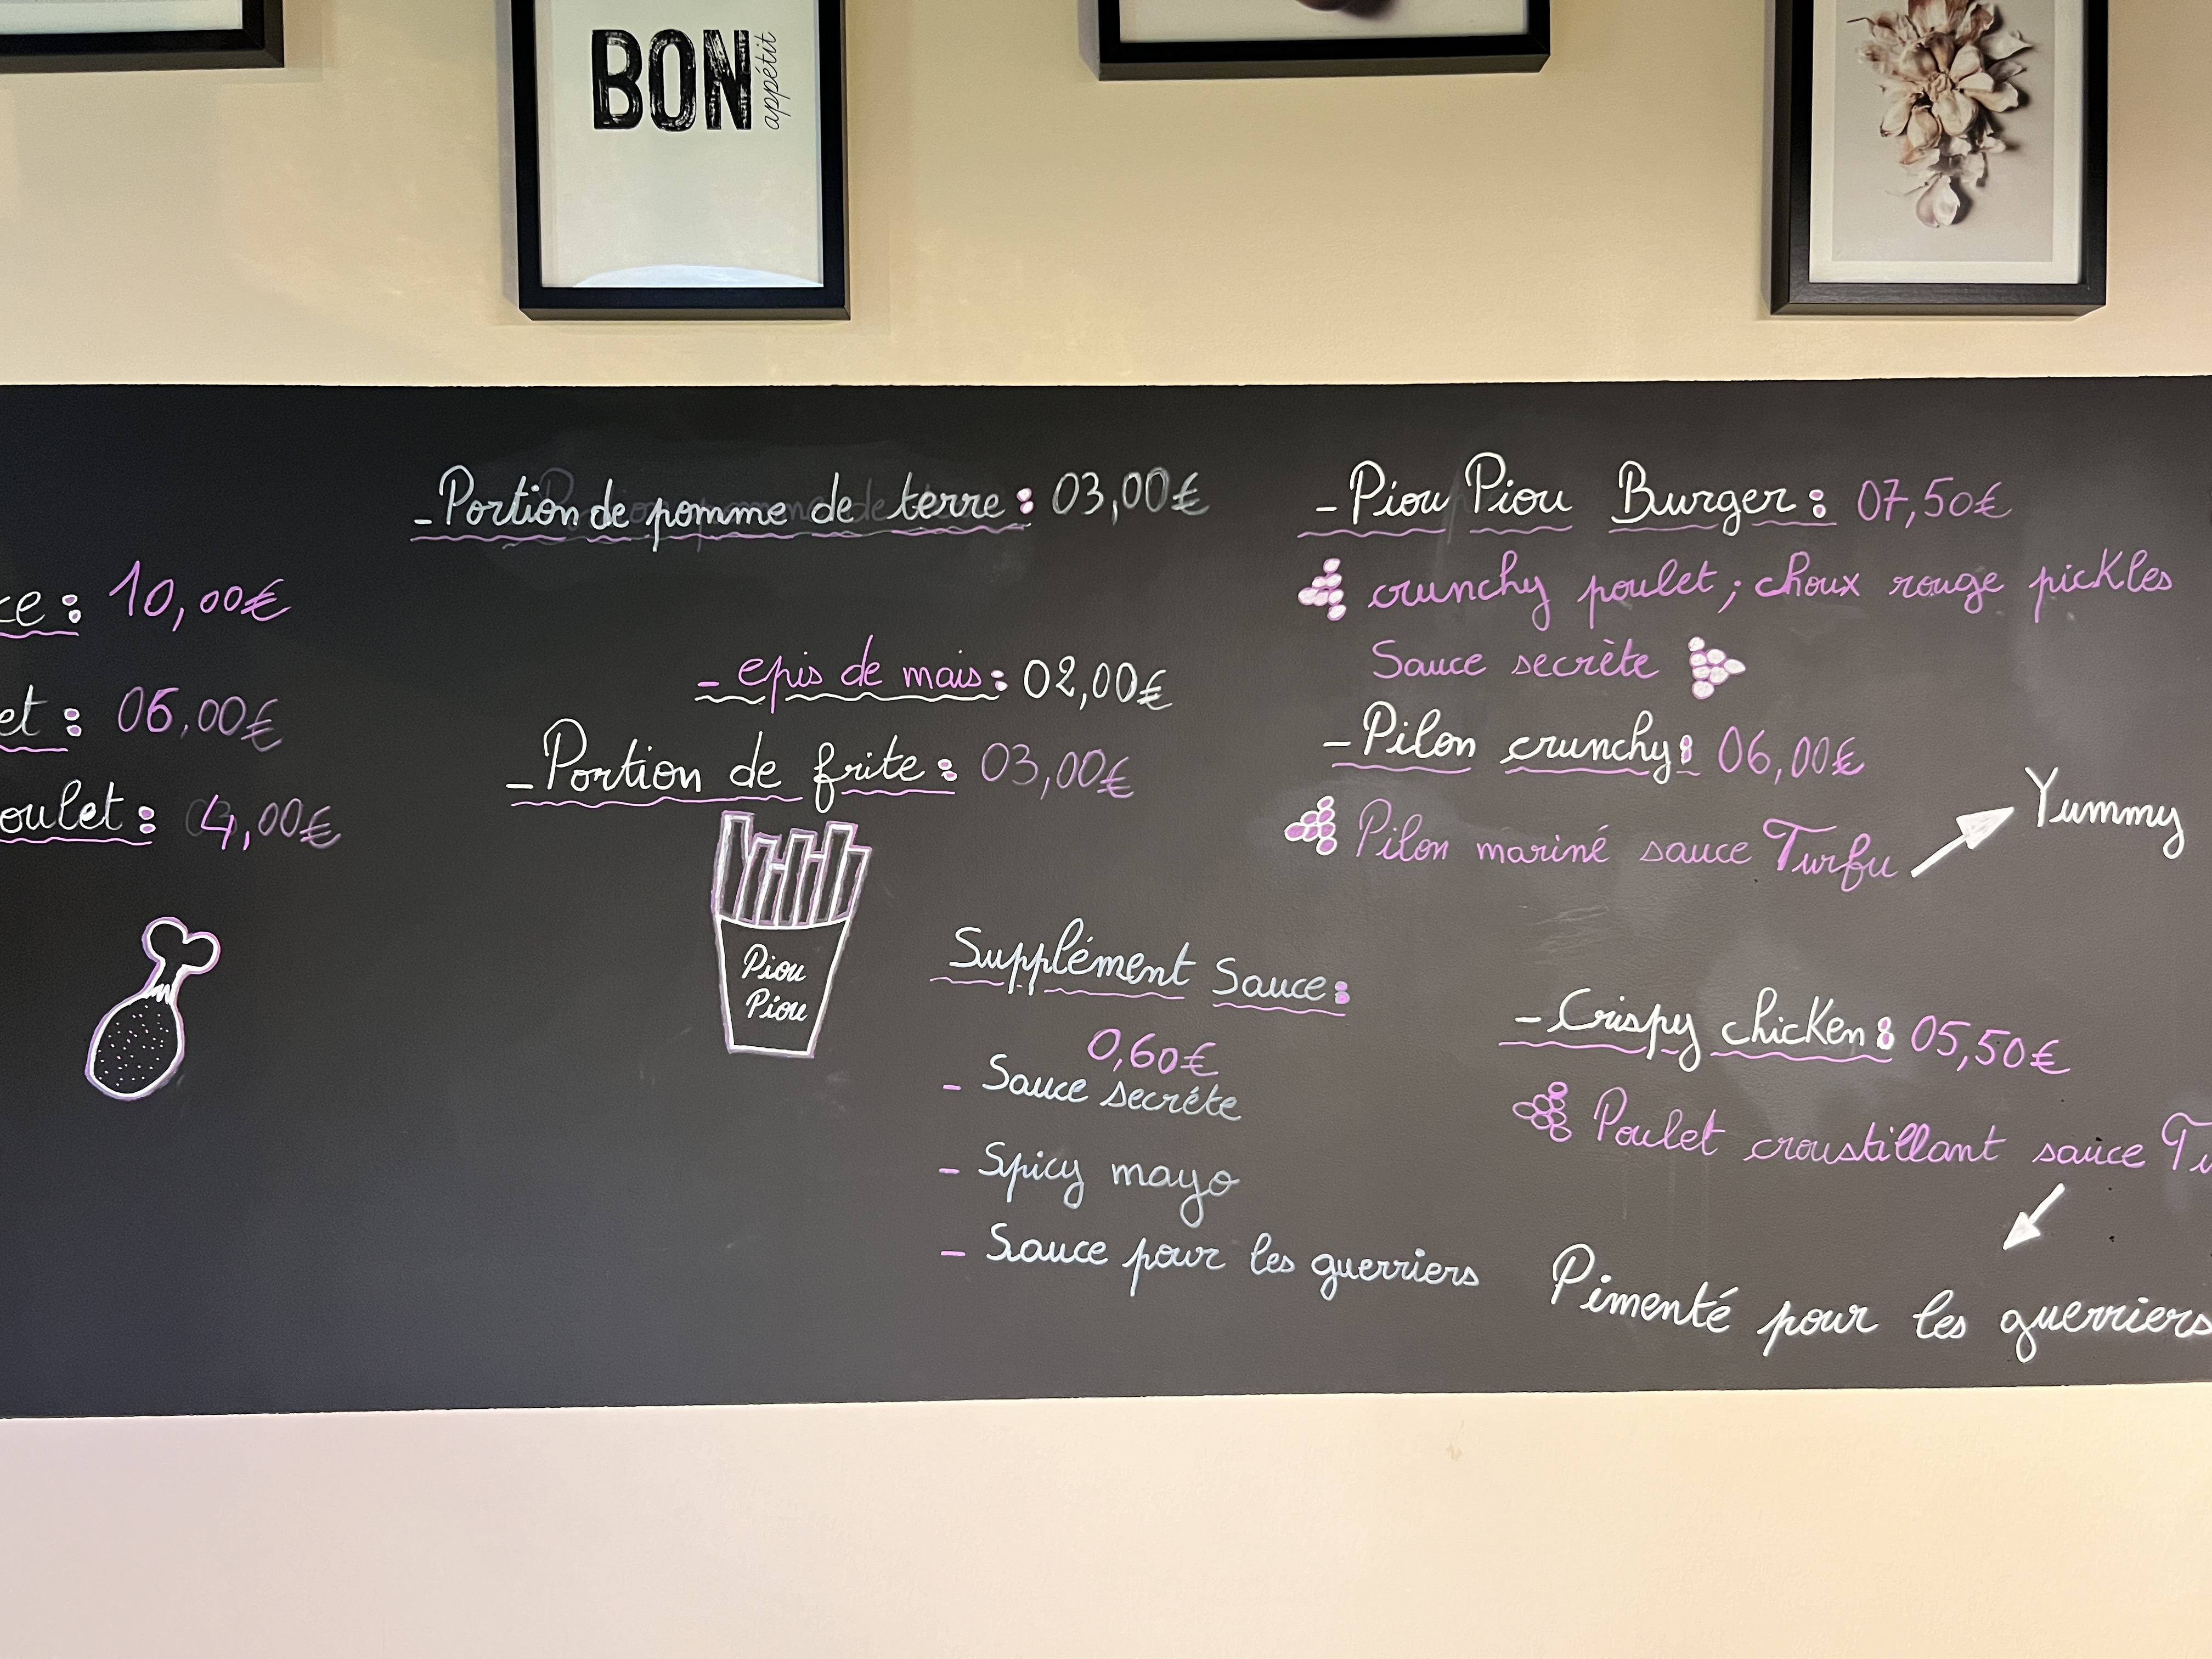 BON
appétit
10,00€
06,00€
4,00€
- Portion de pomme de terre : 03,00€
- epis de mais : 02,00€
- Portion de frite : 03,00€
Piou
Piou
Supplément Sauce :
0,60€
- Sauce secréte
- Spicy mayo
- Sauce pour les guerriers
- Piou Piou Burger : 07,50€
crunchy poulet ; choux rouge pickles
Sauce secrète
- Pilon crunchy : 06,00€
Pilon mariné sauce Turfu
Yummy
- Crispy chicken : 05,50€
Poulet croustillant sauce
Pimenté pour les guerriers